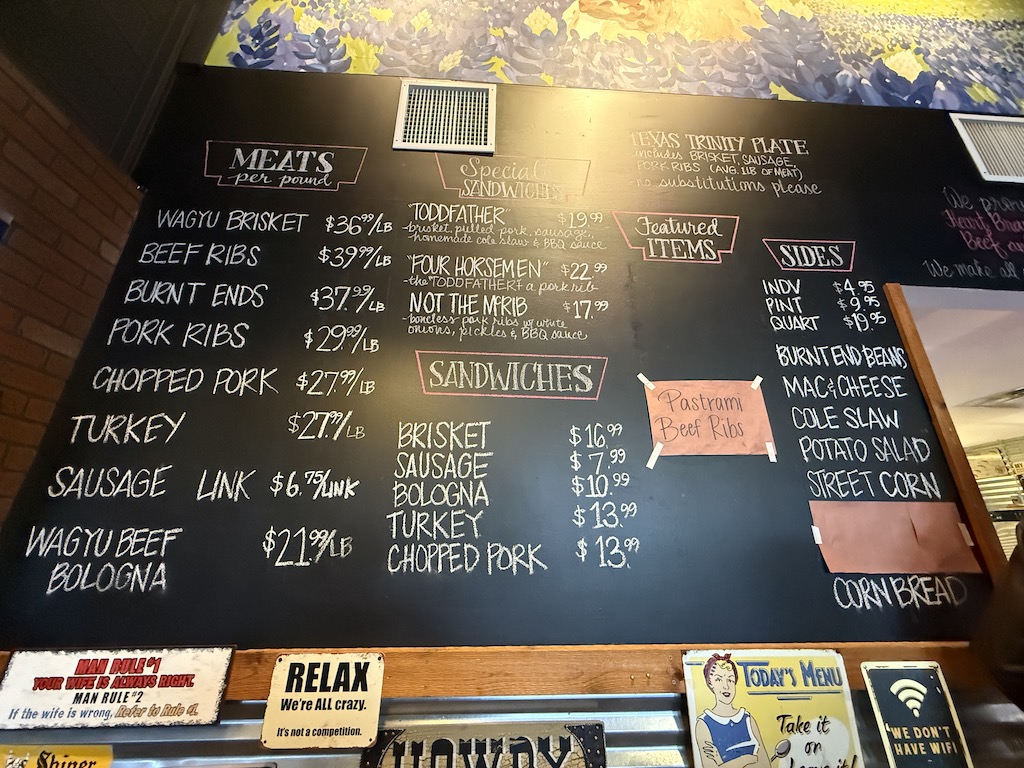 MEATS
per pound
WAGYU BRISKET $36.99/LB
BEEF RIBS $39.99/LB
BURNT ENDS $37.99/LB
PORK RIBS $29.99/LB
CHOPPED PORK $27.99/LB
TURKEY $27.99/LB
SAUSAGE LINK $6.75/LINK
WAGYU BEEF
BOLOGNA $21.99/LB
Specialty
SANDWICHES
"TODDFATHER" $19.99
-brisket, pulled pork, sausage,
-homemade cole slaw & BBQ sauce
"FOUR HORSEMEN" $22.99
-the "TODDFATHER" & a pork rib
NOT THE McRIB $17.99
-boneless pork ribs w/ white
onions, pickles & BBQ sauce
SANDWICHES
BRISKET $16.99
SAUSAGE $7.99
BOLOGNA $10.99
TURKEY $13.99
CHOPPED PORK $13.99
TEXAS TRINITY PLATE
includes BRISKET, SAUSAGE,
PORK RIBS (AVG. 1LB OF MEAT)
no substitutions please
Featured
ITEMS
Pastrami
Beef Ribs
SIDES
INDV $4.95
PINT $9.95
QUART $19.95
BURNT END BEANS
MAC & CHEESE
COLE SLAW
POTATO SALAD
STREET CORN
CORN BREAD
We
Heart
Beef
We make all
MAN RULE #1
YOUR WIFE IS ALWAYS RIGHT.
MAN RULE #2
If the wife is wrong, Refer to Rule #1.
Shiner
RELAX
We're ALL crazy.
It's not a competition.
HOWDY
TODAY'S MENU
Take it
or
Leave it!
"WE DON'T
HAVE WIFI